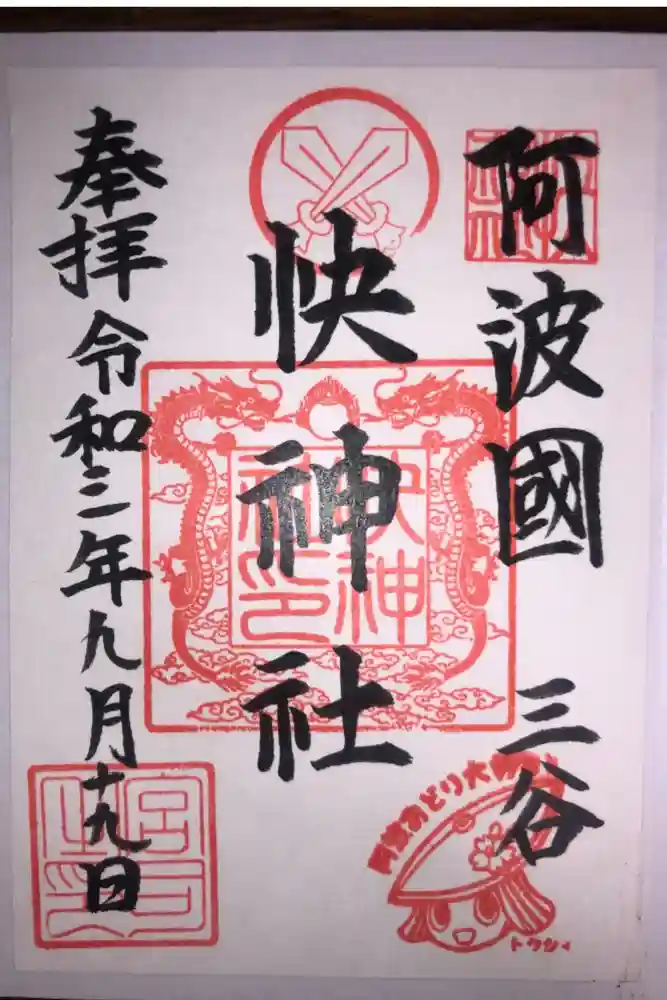 阿波國 三谷
快神社
快神社印
奉拝 令和三年九月十九日
阿波おどり大
トクシィ